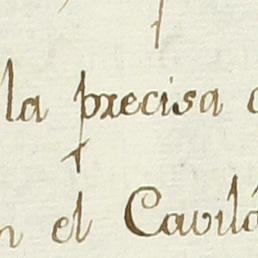 la precisa
el Cavil